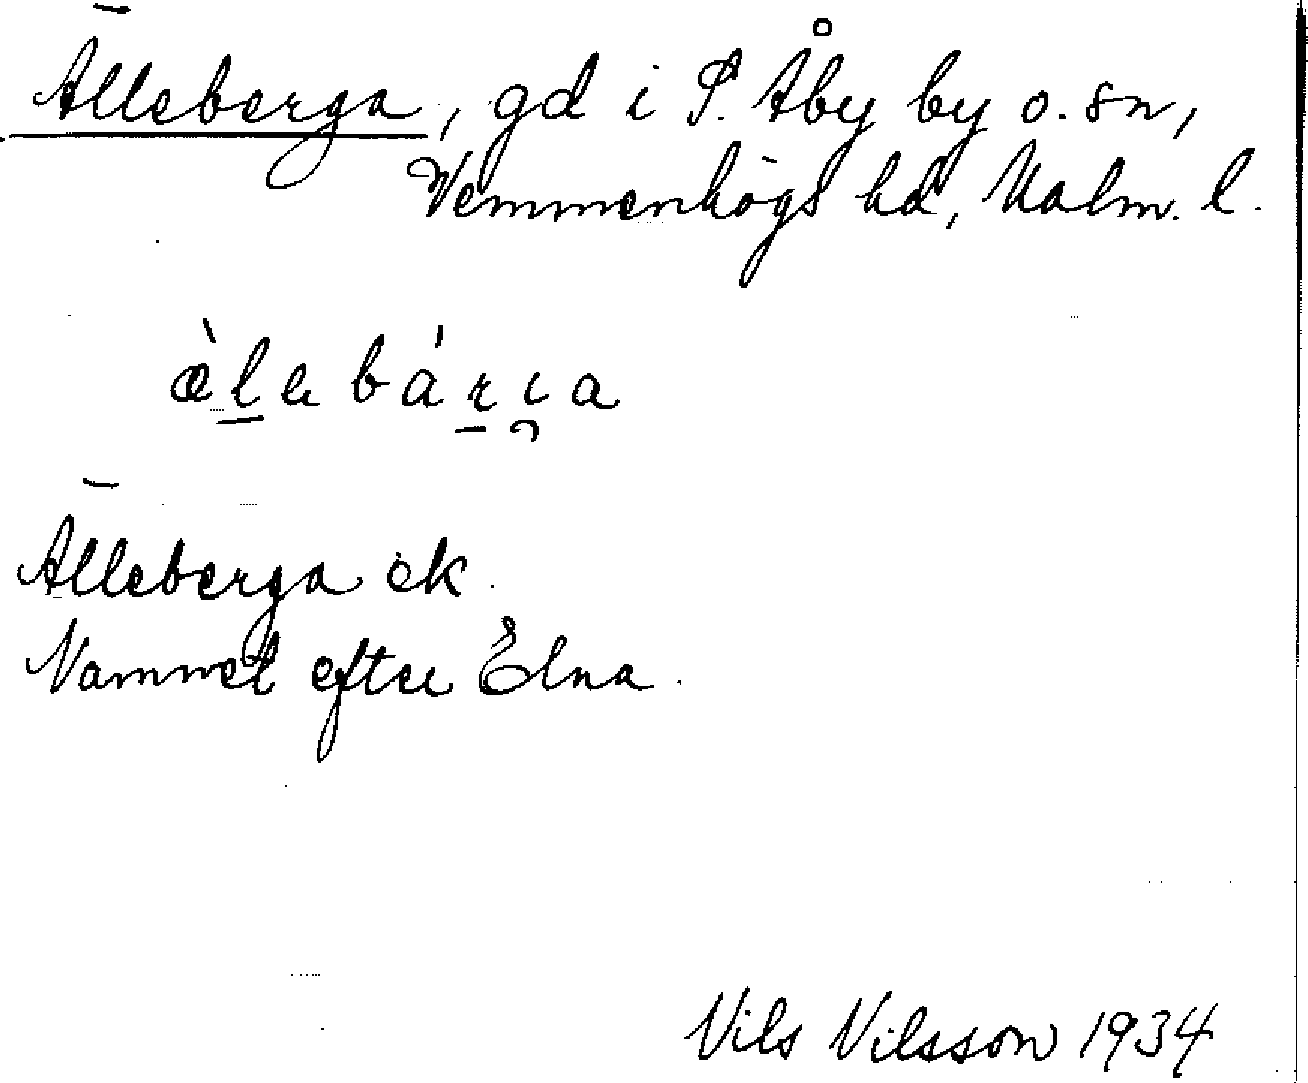 Älleberga, gd i S. Åby by o. sn,
Vemmenhögs hd, Malm. l.
æ̀lebária
Älleberga ek.
Namnet efter Elna.
Nils Nilsson 1934